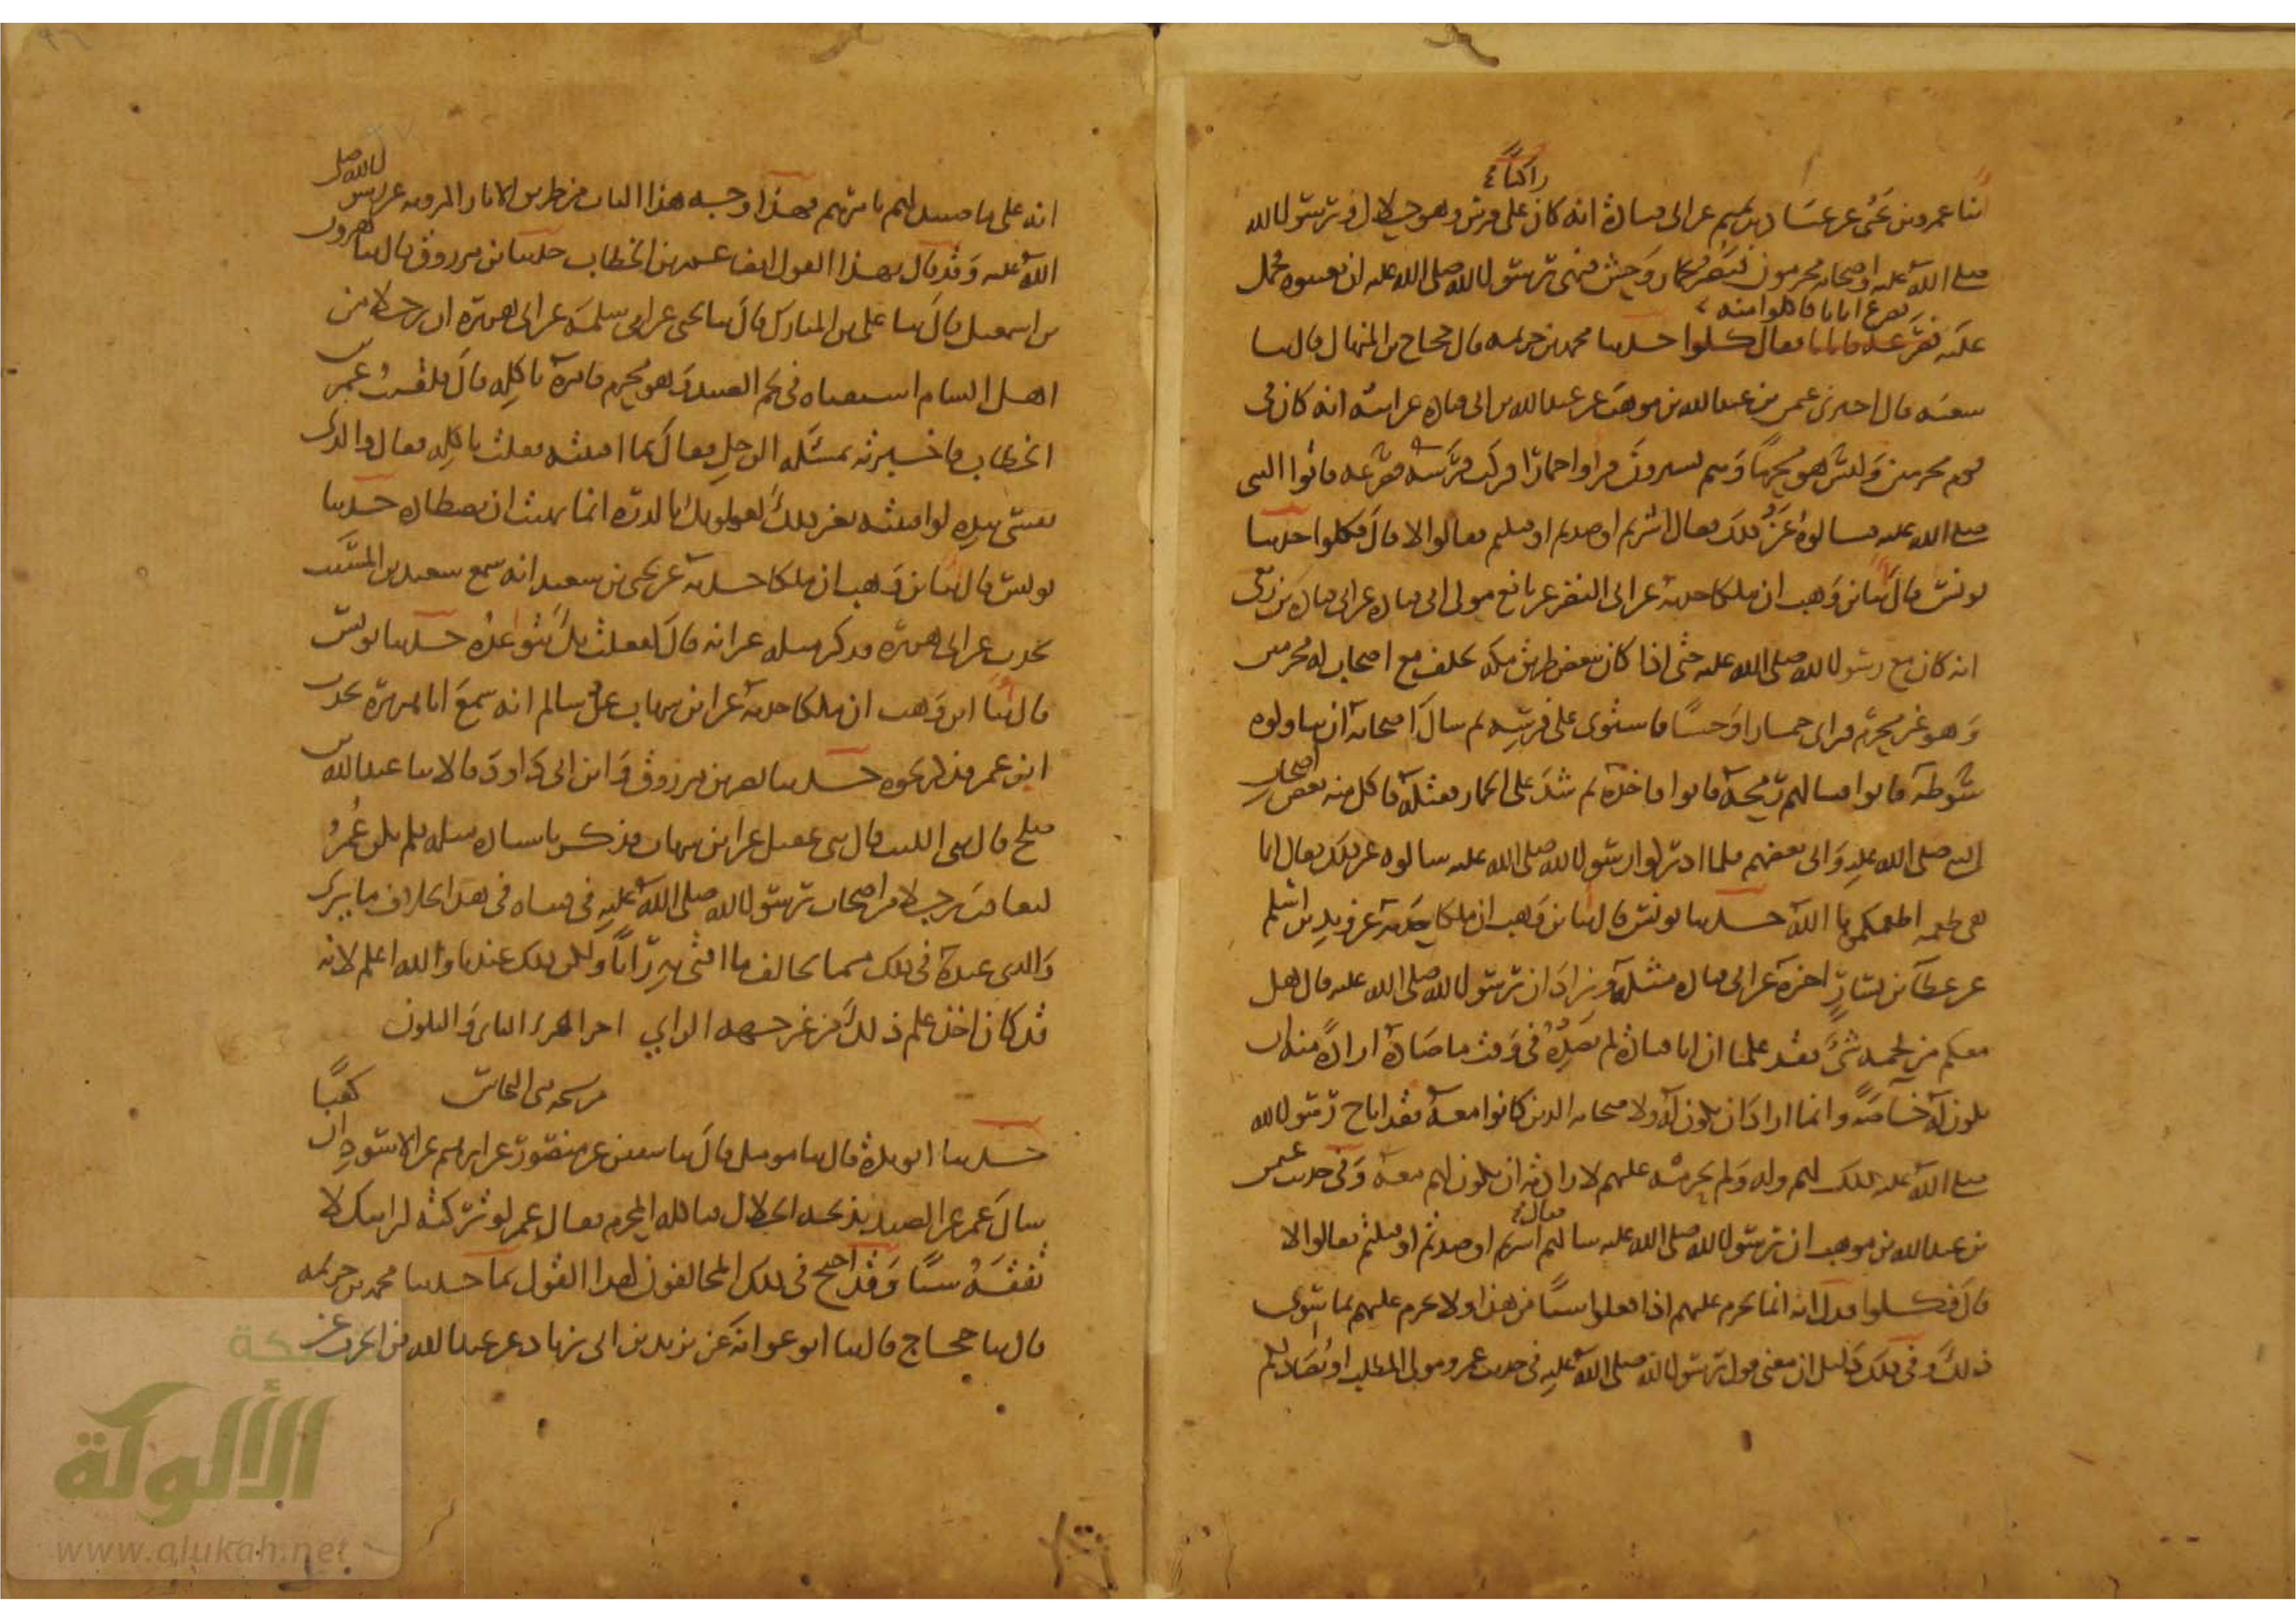 راكبا
ثنا عمرو بن يحيى عن عباد بن تميم عن ابي قتادة انه كان على فرس وهو حلال ورسول الله
صلى الله عليه واصحابه محرمون فبصر بحمار وحش فنهى رسول الله صلى الله عليه ان يعينوه فحمل
فصرع اتانا فاكلوا منه
عليه فقال كلوا حدثنا محمد بن خزيمة قال حجاج بن المنهال قال ثنا
شعبة قال اخبرني عمن بن عبد الله بن موهب عن عبد الله بن ابي قتادة عن ابيه انه كان في
قوم محرمين وليس هو محرما وهم يسيرون فراوا حمارا فركب فرسه فصرعه فاتوا النبي
صلى الله عليه فسالوه عن ذلك فقال اشرتم او صدتم او قتلتم فقالوا لا قال فكلوا حدثنا
يونس قال ثنا ابن وهب ان ملكا حدثه عن ابي النضر عن نافع مولى ابي قتادة عن ابي قتادة بن ربعي
انه كان مع رسول الله صلى الله عليه حتى اذا كان ببعض طريق مكة تخلف مع اصحاب له محرمين
وهو غير محرم فراى حمارا وحشيا فاستوى على فرسه ثم سال اصحابه ان يناولوه
سوطه فابوا فسالهم رمحه فابوا فاخذه ثم شد على الحمار فقتله فاكل منه بعض اصحاب
النبي صلى الله عليه وابى بعضهم فلما ادركوا رسول الله صلى الله عليه سالوه عن ذلك فقال انما
هي طعمة اطعمكموها الله حدثنا يونس قال ثنا ابن وهب ان ملكا حدثه عن زيد بن اسلم
عن عطاء بن يسار اخبره عن ابي قتادة مثله وزاد ان رسول الله صلى الله عليه قال هل
معكم من لحمه شيء فقد علمنا ان ابا قتادة لم يصده في وقت ما صاده ارادة منه ان
يكون له خاصة وانما اراد ان يكون له ولاصحابه الذين كانوا معه فقد اباح رسول الله
صلى الله عليه ذلك لهم وله ولم يحرمه عليهم لارادته ان يكون لهم معه وفي حديث عثمن
فقال
بن عبد الله بن موهب ان رسول الله صلى الله عليه سالهم اشرتم او صدتم او قتلتم فقالوا لا
قال فكلوا فدل انه انما يحرم عليهم اذا فعلوا شيئا من هذا ولا يحرم عليهم بما سوى
ذلك وفي ذلك دليل ان معنى قول رسول الله صلى الله عليه في حديث عمرو مولى المطلب او يصاد لكم
انه على ما صيد لهم بامرهم فهذا وجه هذا الباب من طريق الاثار المروية عن رسول الله صلى
الله عليه وقد قال بهذا القول ايضا عمر بن الخطاب حدثنا ابن مرزوق قال ثنا هرون
بن اسمعيل قال ثنا علي بن المبارك قال ثنا يحيى عن ابي سلمة عن ابي هريرة ان رجلا من
اهل الشام استفتاه في لحم الصيد وهو محرم فامره باكله قال فلقيت عمر بن
الخطاب فاخبرته بمسئلة الرجل فقال بما افتيته فقلت باكله فقال والذي
نفسي بيده لو افتيته بغير ذلك لعلوتك بالدرة انما نهيت ان تصطاده حدثنا
يونس قال ثنا ابن وهب ان ملكا حدثه عن يحيى بن سعيد انه سمع سعيد بن المسيب
يحدث عن ابي هريرة فذكر مثله غير انه قال لفعلت بك يتواعده حدثنا يونس
قال ثنا ابن وهب ان ملكا حدثه عن ابن شهاب عن سالم انه سمع ابا هريرة يحدث
ابن عمر فذكر نحوه حدثنا نصر بن مرزوق وابن ابي داود قالا ثنا عبد الله بن
صلح قال ثني الليث قال ثني عقيل عن ابن شهاب فذكر باسناده مثله فلم يكن عمر
ليعاقب رجلا من اصحاب رسول الله صلى الله عليه في فتياه في هذا بخلاف ما يرى
والذي عنده في ذلك مما يخالف ما افتى به رايا ولكن ذلك عندنا والله اعلم لانه
قد كان اخذ علم ذلك من غير جهة الراي اخر الجزء الثاني والثلثون
من نسخة النحاس
كعبا
حدثنا ابو بكرة قال ثنا مومل قال ثنا سفين عن منصور عن ابرهيم عن الاسود ان
سال عمر عن الصيد يذبحه الحلال فياكله المحرم فقال عمر لو تركته لرايتك لا
تفقه شيئا وقد احتج في ذلك المخالفون لهذا القول بما حدثنا محمد بن خزيمة
قال ثنا حجاج قال ثنا ابو عوانة عن يزيد بن ابي زياد عن عبد الله بن الحرث عن
شبكة
الألوكة
www.alukah.net